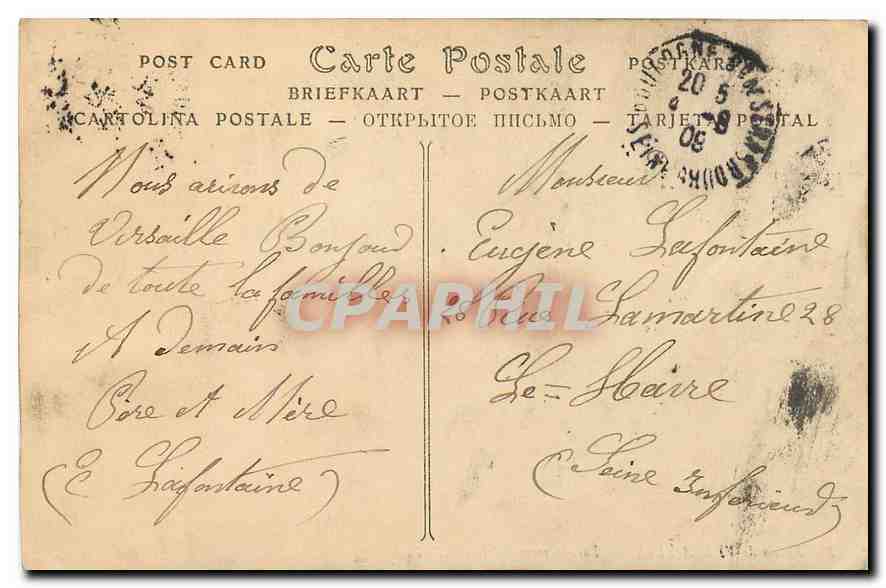 POST CARD Carte Postale POSTKARTE
BRIEFKAART — POSTKAART
CARTOLINA POSTALE — ОТКРЫТОЕ ПИСЬМО — TARJETA POSTAL
20 5
09
Nous arivons de
Versaille Bonjour
de toute la familles
A demain
Père et Mère
(E Lafontaine)
Monsieur
Eugène Lafontaine
28 Rue Lamartine 28
Le = Havre
(Seine Inferieud)
CPAPHIL